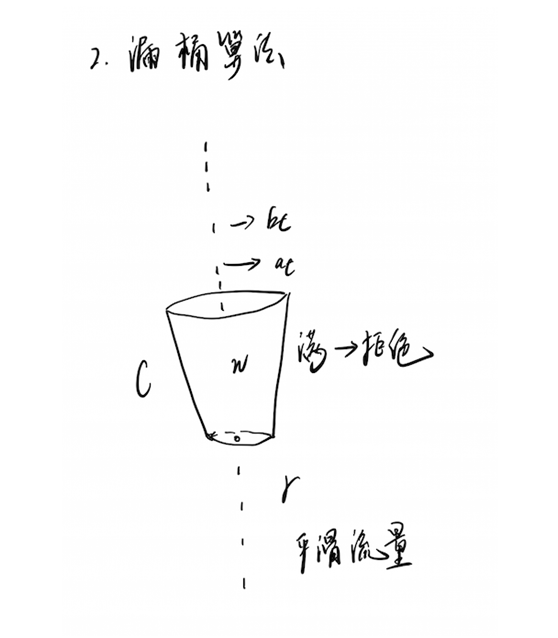 2. 漏桶算法
→ bt
→ at
C
w
满→拒绝
r
平滑流量